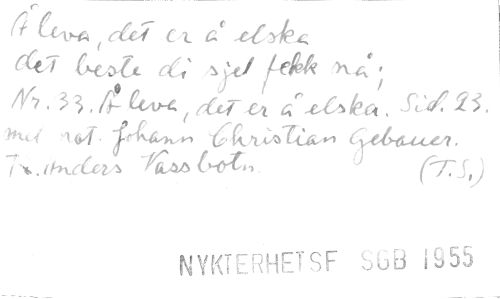 Å leva, det er å elska
det beste di sjel fekk nå;
Nr. 33. Å leva, det er å elska. Sid. 23.
mel not. Johann Christian Gebauer.
Tx. Anders Vassbotn. (T.S.)
NYKTERHETSF SGB 1955